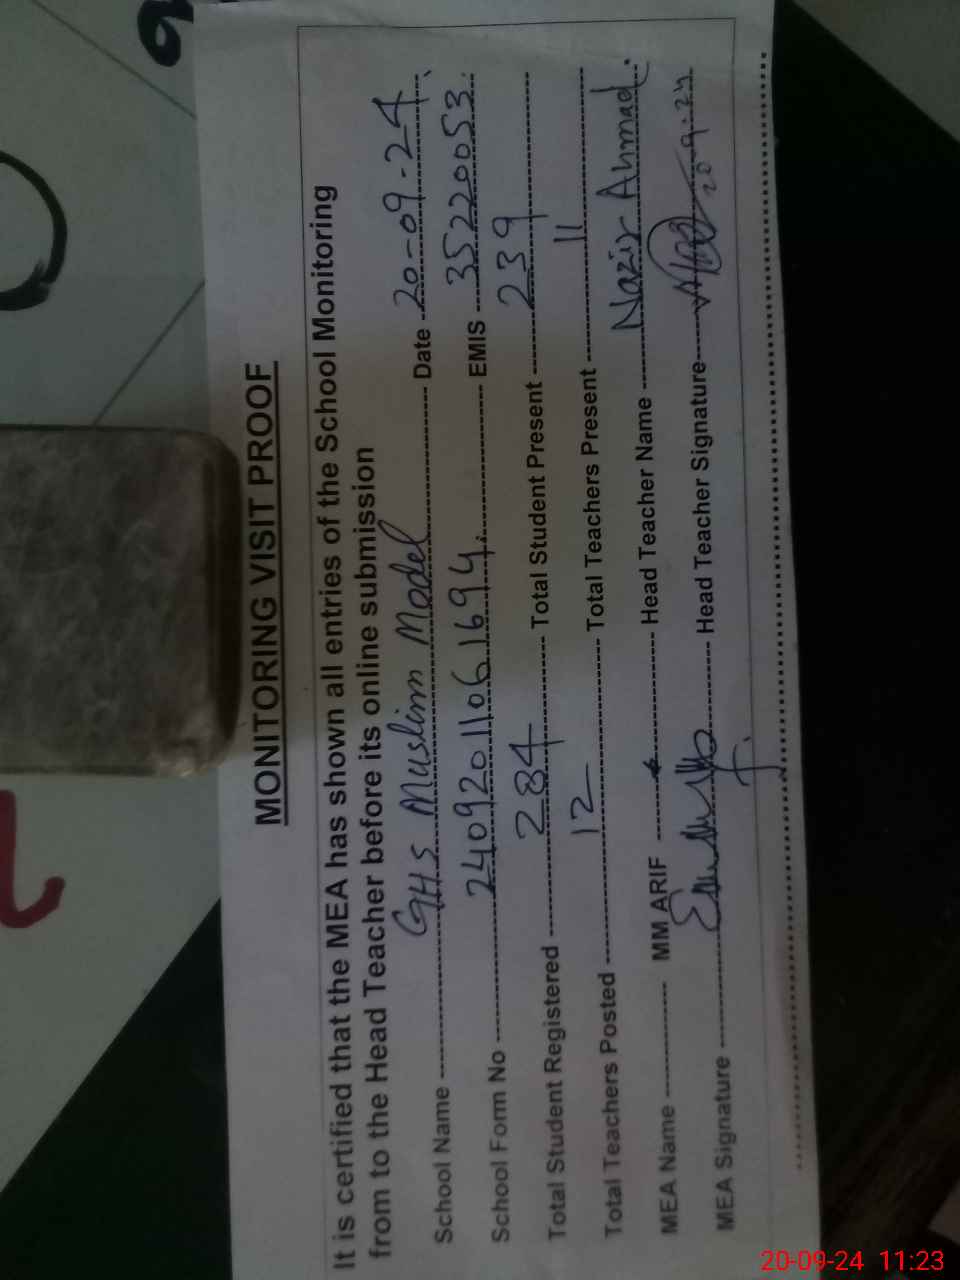 MONITORING VISIT PROOF
It is certified that the MEA has shown all entries of the School Monitoring
from to the Head Teacher before its online submission
School Name GHS Muslim Model Date 20-09-24
School Form No 24092011061694 EMIS 35220053
Total Student Registered 284 Total Student Present 239
Total Teachers Posted 12 Total Teachers Present 11
MEA Name MM ARIF Head Teacher Name Nazir Ahmad.
MEA Signature Head Teacher Signature 20-9-24
20-09-24 11:23